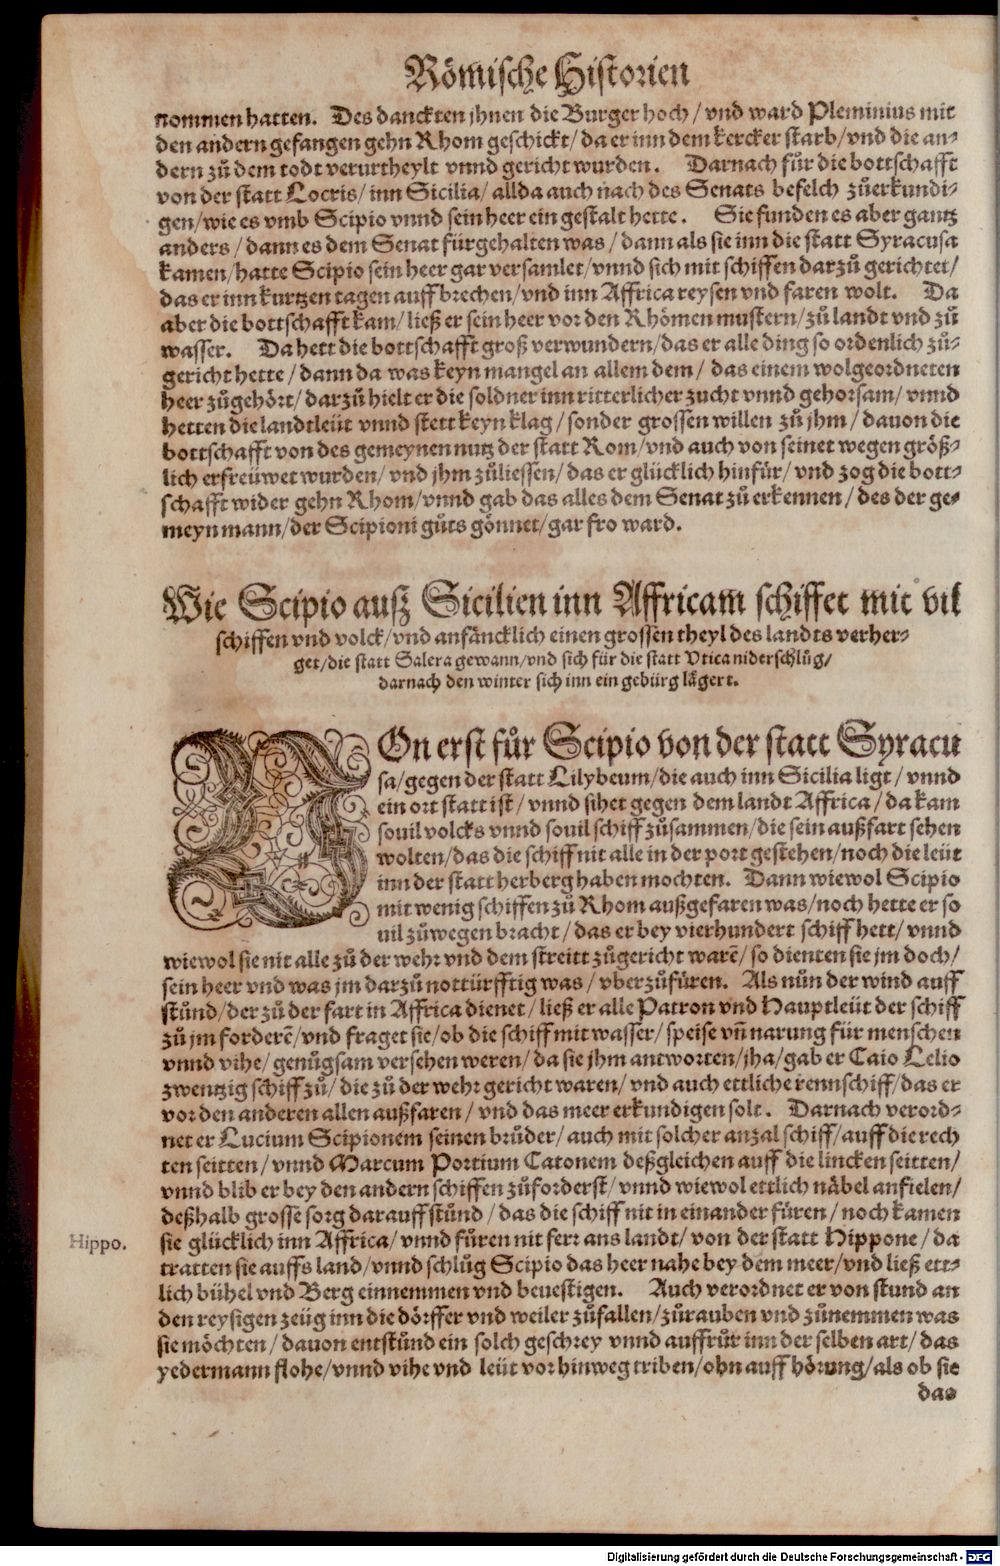 Römische Historien
nommen hatten. Des danckten jhnen die Burger hoch/ vnd ward Pleminius mit
den andern gefangen gehn Rhom geschickt/ da er inn dem kercker starb/ vnd die an-
dern zů dem todt verurtheylt vnnd gericht wurden. Darnach fůr die bottschafft
von der statt Locris/ inn Sicilia/ allda auch nach des Senats befelch zůerkundi-
gen/ wie es vmb Scipio vnnd sein heer ein gestalt hette. Sie funden es aber gantz
anders/ dann es dem Senat fürgehalten was/ dann als sie inn die statt Syracusa
kamen/ hatte Scipio sein heer gar versamlet/ vnnd sich mit schiffen darzů gerichtet/
das er inn kurtzen tagen auffbrechen/ vnd inn Affrica reysen vnd faren wolt. Da
aber die bottschafft kam/ ließ er sein heer vor den Rhömen mustern/ zů landt vnd zů
wasser. Da hett die bottschafft groß verwundern/ das er alle ding so ordenlich zů-
gericht hette/ dann da was keyn mangel an allem dem/ das einem wolgeordneten
heer zůgehört/ darzů hielt er die soldner inn ritterlicher zucht vnnd gehorsam/ vnnd
hetten die landtleüt vnnd stett keyn klag/ sonder grossen willen zů jhm/ dauon die
bottschafft von des gemeynen nutz der statt Rom/ vnd auch von seinet wegen größ-
lich erfreüwet wurden/ vnd jhm zůliessen/ das er glücklich hinfür/ vnd zog die bott-
schafft wider gehn Rhom/ vnnd gab das alles dem Senat zů erkennen/ des der ge-
meyn mann/ der Scipioni gůts gönnet/ gar fro ward.
Wie Scipio außz Sicilien inn Affricam schiffet mit vil
schiffen vnd volck/ vnd anfäncklich einen grossen theyl des landts verher-
get/ die statt Salera gewann/ vnd sich für die statt Vtica niderschlůg/
darnach den winter sich inn ein gebürg lägert.
VOn erst fůr Scipio von der statt Syracu
sa/ gegen der statt Lilybeum/ die auch inn Sicilia ligt/ vnnd
ein ort statt ist/ vnnd sihet gegen dem landt Affrica/ da kam
souil volcks vnnd souil schiff zůsammen/ die sein außfart sehen
wolten/ das die schiff nit alle in der port gestehen/ noch die leüt
inn der statt herberg haben mochten. Dann wiewol Scipio
mit wenig schiffen zů Rhom außgefaren was/ noch hette er so
uil zůwegen bracht/ das er bey vierhundert schiff hett/ vnnd
wiewol sie nit alle zů der wehr vnd dem streitt zůgericht warẽ/ so dienten sie jm doch/
sein heer vnd was jm darzů nottürfftig was/ vberzůfüren. Als nůn der wind auff
stůnd/ der zů der fart in Affrica dienet/ ließ er alle Patron vnd Hauptleüt der schiff
zů jm forderẽ/ vnd fraget sie/ ob die schiff mit wasser/ speise vñ narung für menschen
vnnd vihe/ genůgsam versehen weren/ da sie jhm antworten/ jha/ gab er Caio Lelio
zwentzig schiff zů/ die zů der wehr gericht waren/ vnd auch ettliche rennschiff/ das er
vor den anderen allen außfaren/ vnd das meer erkundigen solt. Darnach verord-
net er Lucium Scipionem seinen brůder/ auch mit solcher anzal schiff/ auff die rech
ten seitten/ vnnd Marcum Portium Catonem deßgleichen auff die lincken seitten/
vnnd blib er bey den andern schiffen zůforderst/ vnnd wiewol ettlich näbel anfielen/
deßhalb grosse sorg darauff stůnd/ das die schiff nit in einander füren/ noch kamen
Hippo.
sie glücklich inn Affrica/ vnnd füren nit ferr ans landt/ von der statt Hippone/ da
tratten sie auffs land/ vnnd schlůg Scipio das heer nahe bey dem meer/ vnd ließ ett-
lich bühel vnd Berg einnemmen vnd beuestigen. Auch verordnet er von stund an
den reysigen zeüg inn die dörffer vnd weiler zůfallen/ zůrauben vnd zůnemmen was
sie möchten/ dauon entstůnd ein solch geschrey vnnd auffrůr inn der selben art/ das
yedermann flohe/ vnnd vihe vnd leüt vor hinweg triben/ ohn auffhörung/ als ob sie
das
Digitalisierung gefördert durch die Deutsche Forschungsgemeinschaft - DFG